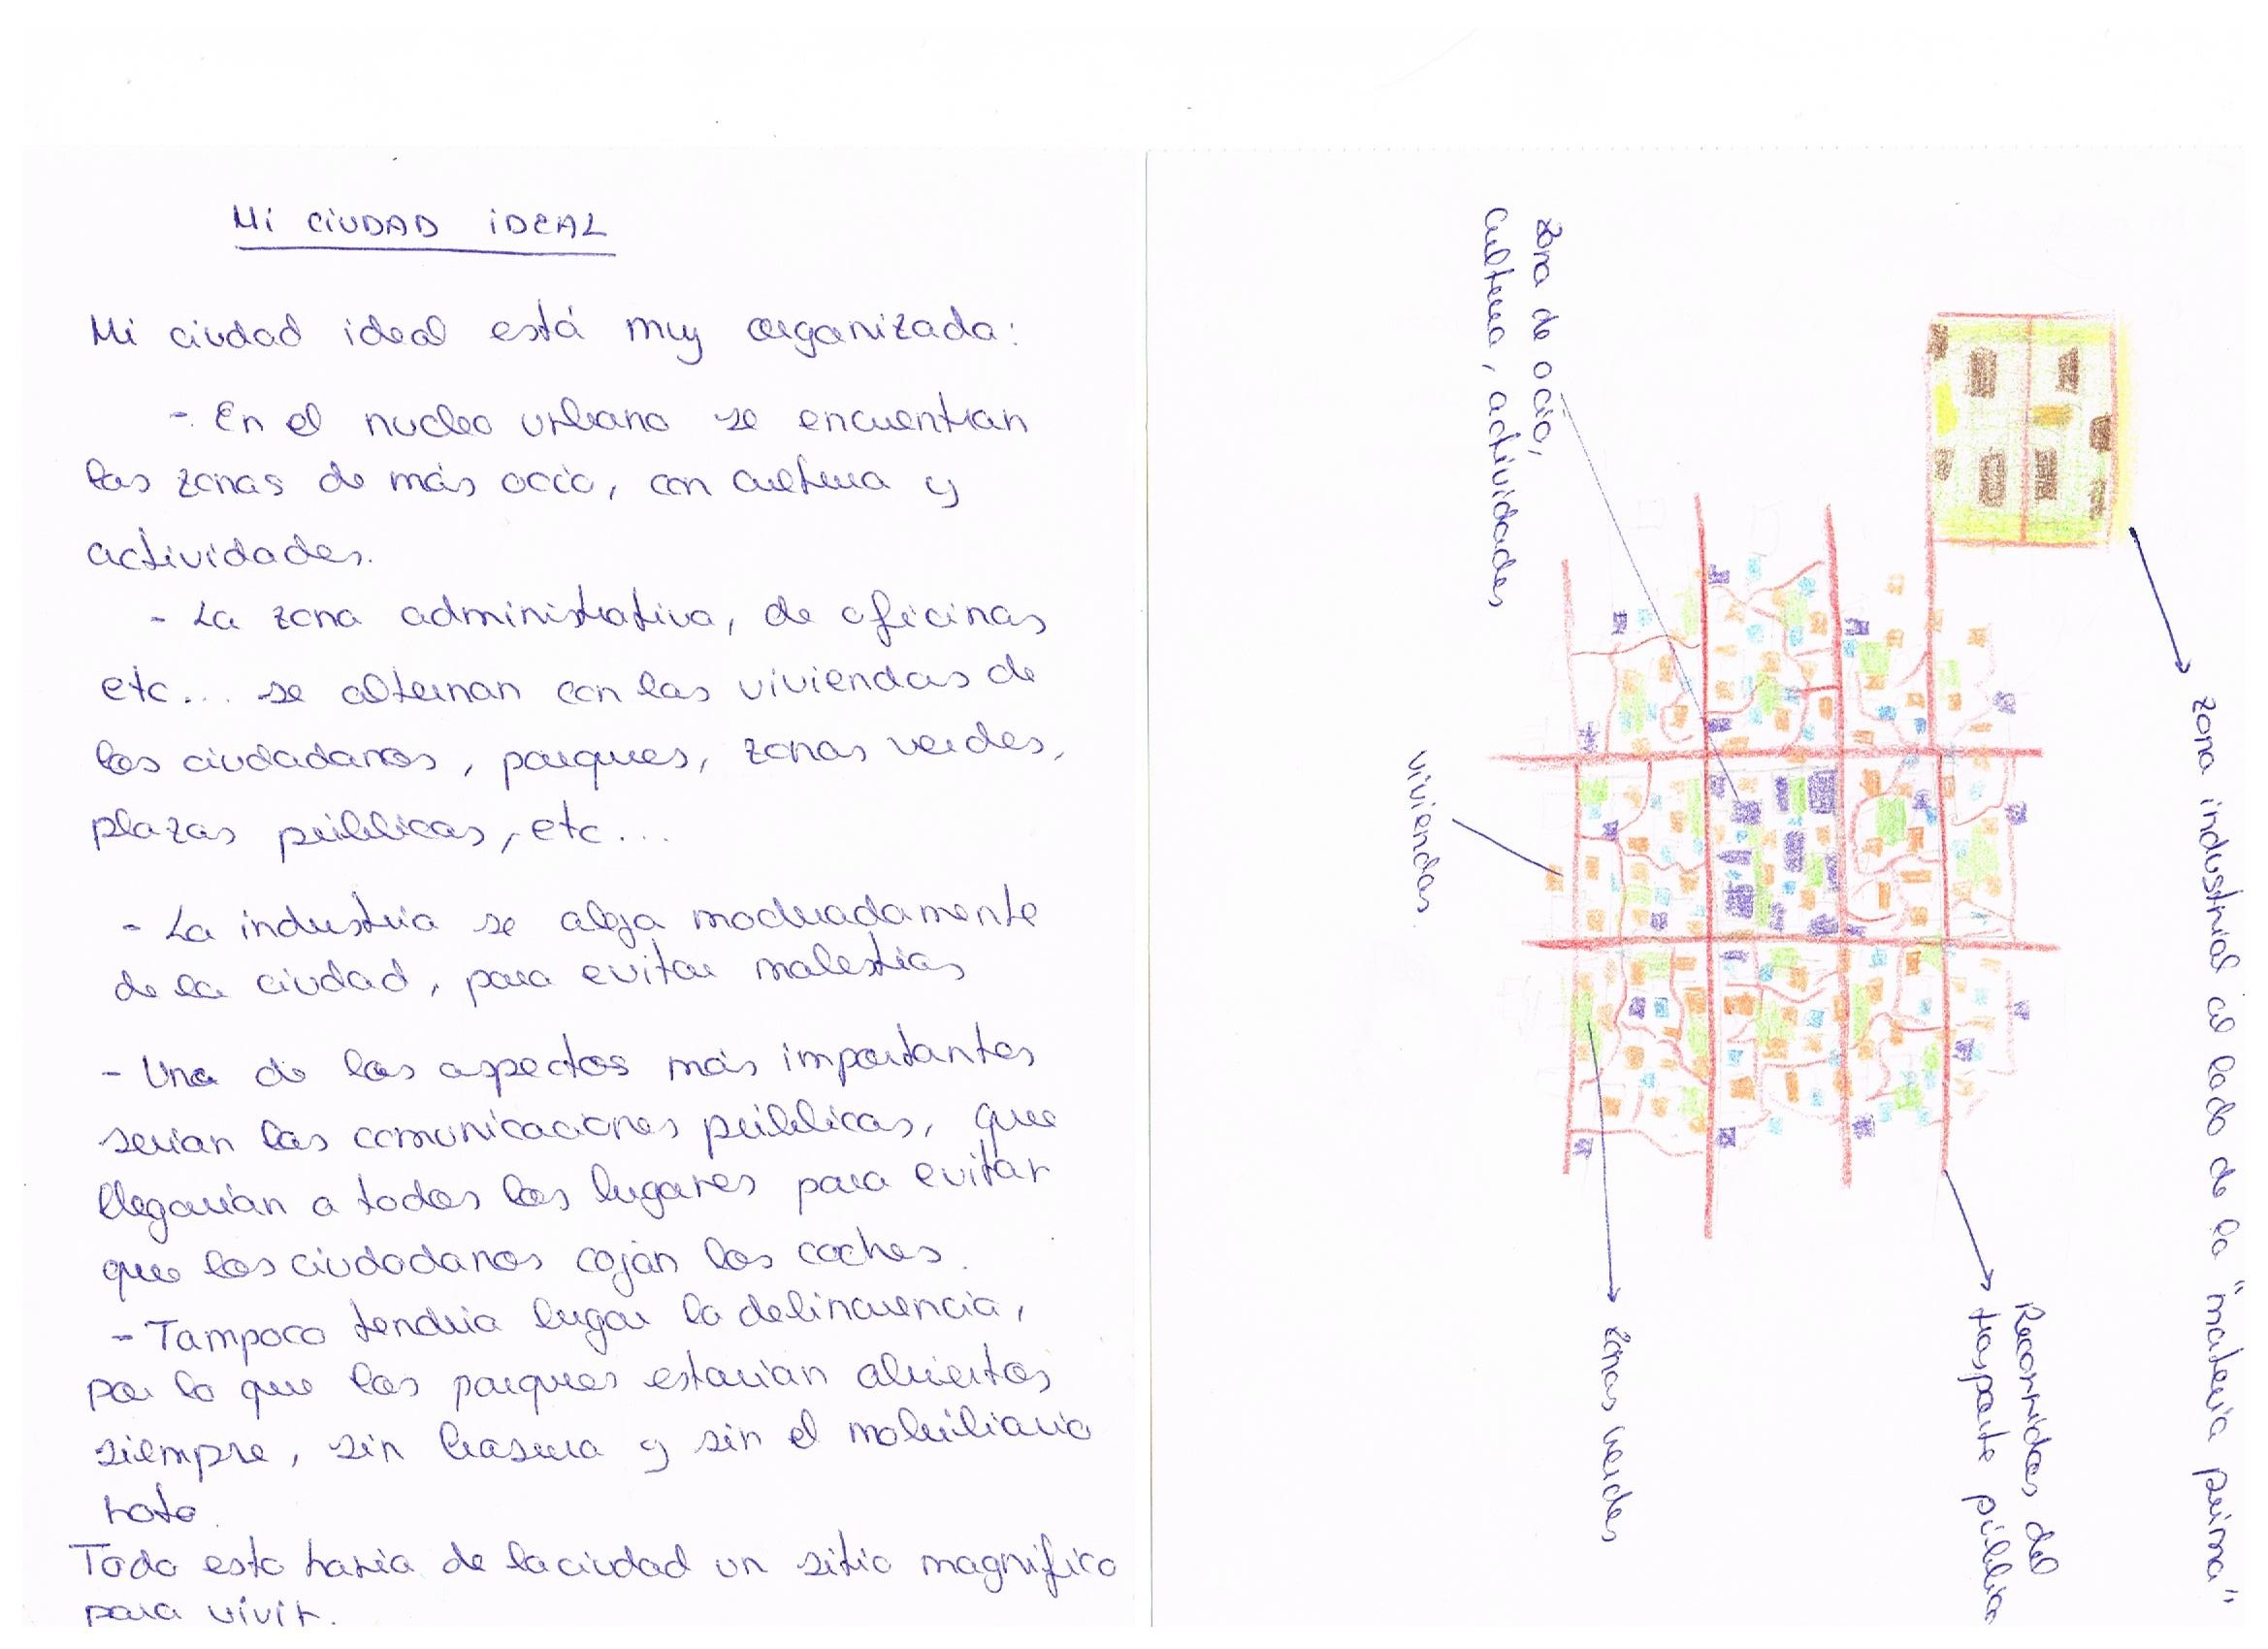 Mi CiUDAD iDEAL
Mi ciudad ideal está muy organizada:
- En el nucleo urbano se encuentran
las zonas de más ocio, con cultura y
actividades.
- La zona administrativa, de oficinas
etc... se alternan con las viviendas de
los ciudadanos, parques, zonas verdes,
plazas públicas, etc...
- La industria se aleja moderadamente
de la ciudad, para evitar molestias
- Uno de los aspectos más importantes
serian las comunicaciones públicas, que
llegarían a todos los lugares para evitar
que los ciudadanos coján los coches.
- Tampoco tendria lugar la delincuencia,
por lo que los parques estarían abiertos
siempre, sin basura y sin el mobiliario
roto.
Todo esto haria de la ciudad un sitio magnifico
para vivir.
zona industrial al lado de la "materia prima"
Recorridos del
trasporte público
zona de ocio,
cultura, actividades
zonas verdes
viviendas.